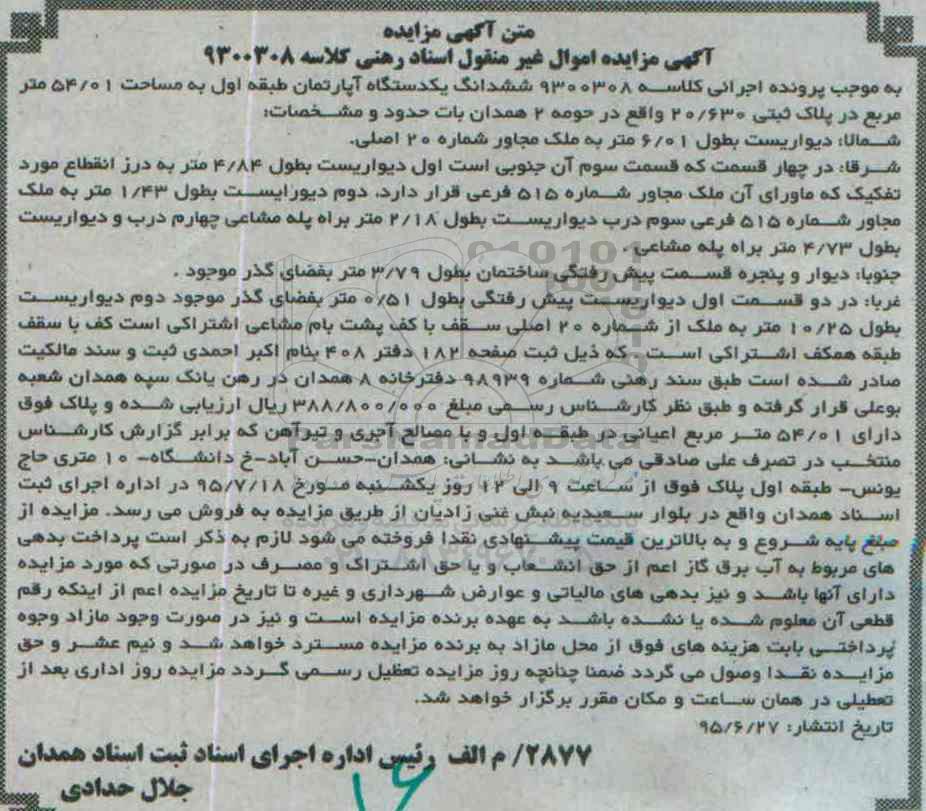 متن آگهی مزایده
آگهی مزایده اموال غیر منقول اسناد رهنی کلاسه ۹۳۰۰۳۰۸
به موجب پرونده اجرائی کلاسه ۹۳۰۰۳۰۸ ششدانگ یکدستگاه آپارتمان طبقه اول به مساحت ۵۴/۰۱ متر
مربع در پلاک ثبتی ۲۰/۶۳۰ واقع در حومه ۲ همدان بات حدود و مشخصات:
شمالا: دیواریست بطول ۶/۰۱ متر به ملک مجاور شماره ۲۰ اصلی.
شرقا: در چهار قسمت که قسمت سوم آن جنوبی است اول دیواریست بطول ۴/۸۴ متر به درز انقطاع مورد
تفکیک که ماورای آن ملک مجاور شماره ۵۱۵ فرعی قرار دارد، دوم دیورایست بطول ۱/۴۳ متر به ملک
مجاور شماره ۵۱۵ فرعی سوم درب دیواریست بطول ۲/۱۸ متر براه پله مشاعی چهارم درب و دیواریست
بطول ۴/۷۳ متر براه پله مشاعی .
جنوبا: دیوار و پنجره قسمت پیش رفتگی ساختمان بطول ۳/۷۹ متر بفضای گذر موجود .
غربا: در دو قسمت اول دیواریست پیش رفتگی بطول ۰/۵۱ متر بفضای گذر موجود دوم دیواریست
بطول ۱۰/۲۵ متر به ملک از شماره ۲۰ اصلی سقف با کف پشت بام مشاعی اشتراکی است کف با سقف
طبقه همکف اشتراکی است . که ذیل ثبت صفحه ۱۸۲ دفتر ۴۰۸ بنام اکبر احمدی ثبت و سند مالکیت
صادر شده است طبق سند رهنی شماره ۹۸۹۳۹ دفترخانه ۸ همدان در رهن یانک سپه همدان شعبه
بوعلی قرار گرفته و طبق نظر کارشناس رسمی مبلغ ۳۸۸/۸۰۰/۰۰۰ ریال ارزیابی شده و پلاک فوق
دارای ۵۴/۰۱ متر مربع اعیانی در طبقه اول و با مصالح آجری و تیرآهن که برابر گزارش کارشناس
منتخب در تصرف علی صادقی می باشد به نشانی: همدان-حسن آباد-خ دانشگاه- ۱۰ متری حاج
یونس- طبقه اول پلاک فوق از ساعت ۹ الی ۱۲ روز یکشنبه مورخ ۹۵/۷/۱۸ در اداره اجرای ثبت
اسناد همدان واقع در بلوار سعیدیه نبش غنی زادیان از طریق مزایده به فروش می رسد. مزایده از
مبلغ پایه شروع و به بالاترین قیمت پیشنهادی نقدا فروخته می شود لازم به ذکر است پرداخت بدهی
های مربوط به آب برق گاز اعم از حق انشعاب و یا حق اشتراک و مصرف در صورتی که مورد مزایده
دارای آنها باشد و نیز بدهی های مالیاتی و عوارض شهرداری و غیره تا تاریخ مزایده اعم از اینکه رقم
قطعی آن معلوم شده یا نشده باشد به عهده برنده مزایده است و نیز در صورت وجود مازاد وجوه
پرداختی بابت هزینه های فوق از محل مازاد به برنده مزایده مسترد خواهد شد و نیم عشر و حق
مزایده نقدا وصول می گردد ضمنا چنانچه روز مزایده تعظیل رسمی گردد مزایده روز اداری بعد از
تعطیلی در همان ساعت و مکان مقرر برگزار خواهد شد.
تاریخ انتشار: ۹۵/۶/۲۷
۲۸۷۷/ م الف رئیس اداره اجرای اسناد ثبت اسناد همدان
جلال حدادی
۱۶